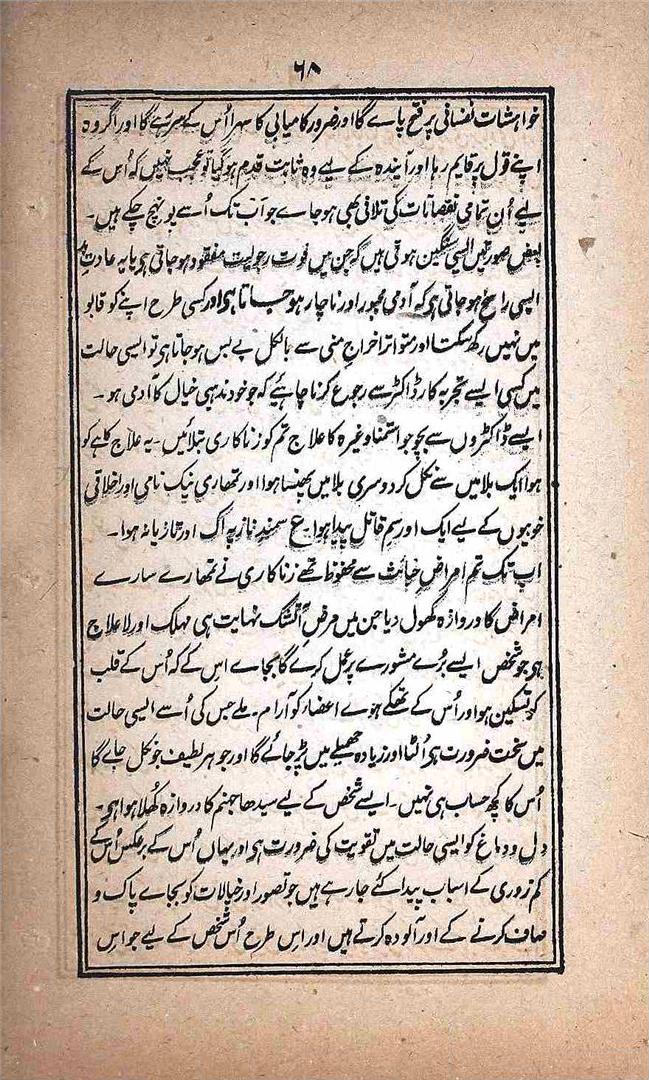 ۶۸
خواہشات نفسانی پر فتح پاے گا اور ضرور کامیابی کا سہرا اُس کے سر رہے گا اور اگر وہ
اپنے قول پر قایم رہا اور آیندہ کے لیے وہ ثابت قدم ہوگیا تو عجب نہیں کہ اُس کے
لیے اُن تمامی نقصانات کی تلافی بھی ہوجاے جو اَب تک اُسے پہونچ چکے ہیں۔
بعض صورتیں ایسی سنگین ہوتی ہیں کہ جن میں قوت رجولیت مفقود ہوجاتی ہی یا یہ عادت
ایسی راسخ ہوجاتی ہی کہ آدمی مجبور اور ناچار ہوجاتا ہی اور کسی طرح اپنے کو قابو
میں نہیں رکھ سکتا اور متواتر اخراجِ منی سے بالکل بے بس ہوجاتا ہی تو ایسی حالت
میں کسی ایسے تجربہ کار ڈاکٹر سے رجوع کرنا چاہیے کہ جو خود مذہبی خیال کا آدمی ہو۔
ایسے ڈاکٹروں سے بچو جو استمنا وغیرہ کا علاج تم کو زنا کاری بتلائیں۔ یہ علاج کاہے کو
ہوا ایک بلا میں سے نکل کر دوسری بلا میں پھنسا ہوا اور تمھاری نیک نامی اور اخلاقی
خوبیوں کے لیے ایک اور سمِ قاتل پیدا ہوا۔ ع سمندِ ناز پہ اِک اور تازیانہ ہوا۔
اب تک تم امراضِ خبائث سے محفوظ تھے زنا کاری نے تمھارے سارے
امراض کا دروازہ کھول دیا جن میں مرضِ آتشک نہایت ہی مہلک اور لاعلاج
ہی جو شخص ایسے بُرے مشورے پر عمل کرے گا بجاے اس کے کہ اُس کے قلب
کو تسکین ہو اور اُس کے تھکے ہوے اعضاء کو آرام۔ ملے جس کی اُسے ایسی حالت
میں سخت ضرورت ہی اُلٹا اور زیادہ جھمیلے میں پڑ جائے گا اور جو ہر لطیف جو نکل جاے گا
اُس کا کچھ حساب ہی نہیں۔ ایسے شخص کے لیے سیدھا جہنم کا دروازہ کھلا ہوا ہی۔
دل و دماغ کو ایسی حالت میں تقویت کی ضرورت ہی اور یہاں اُس کے برعکس اُس کے
کم زوری کے اسباب پیدا کئے جارہے ہیں جو تصور اور خیالات کو بجاے پاک و
صاف کرنے کے اور آلودہ کرتے ہیں اور اس طرح اُس شخص کے لیے جو اس